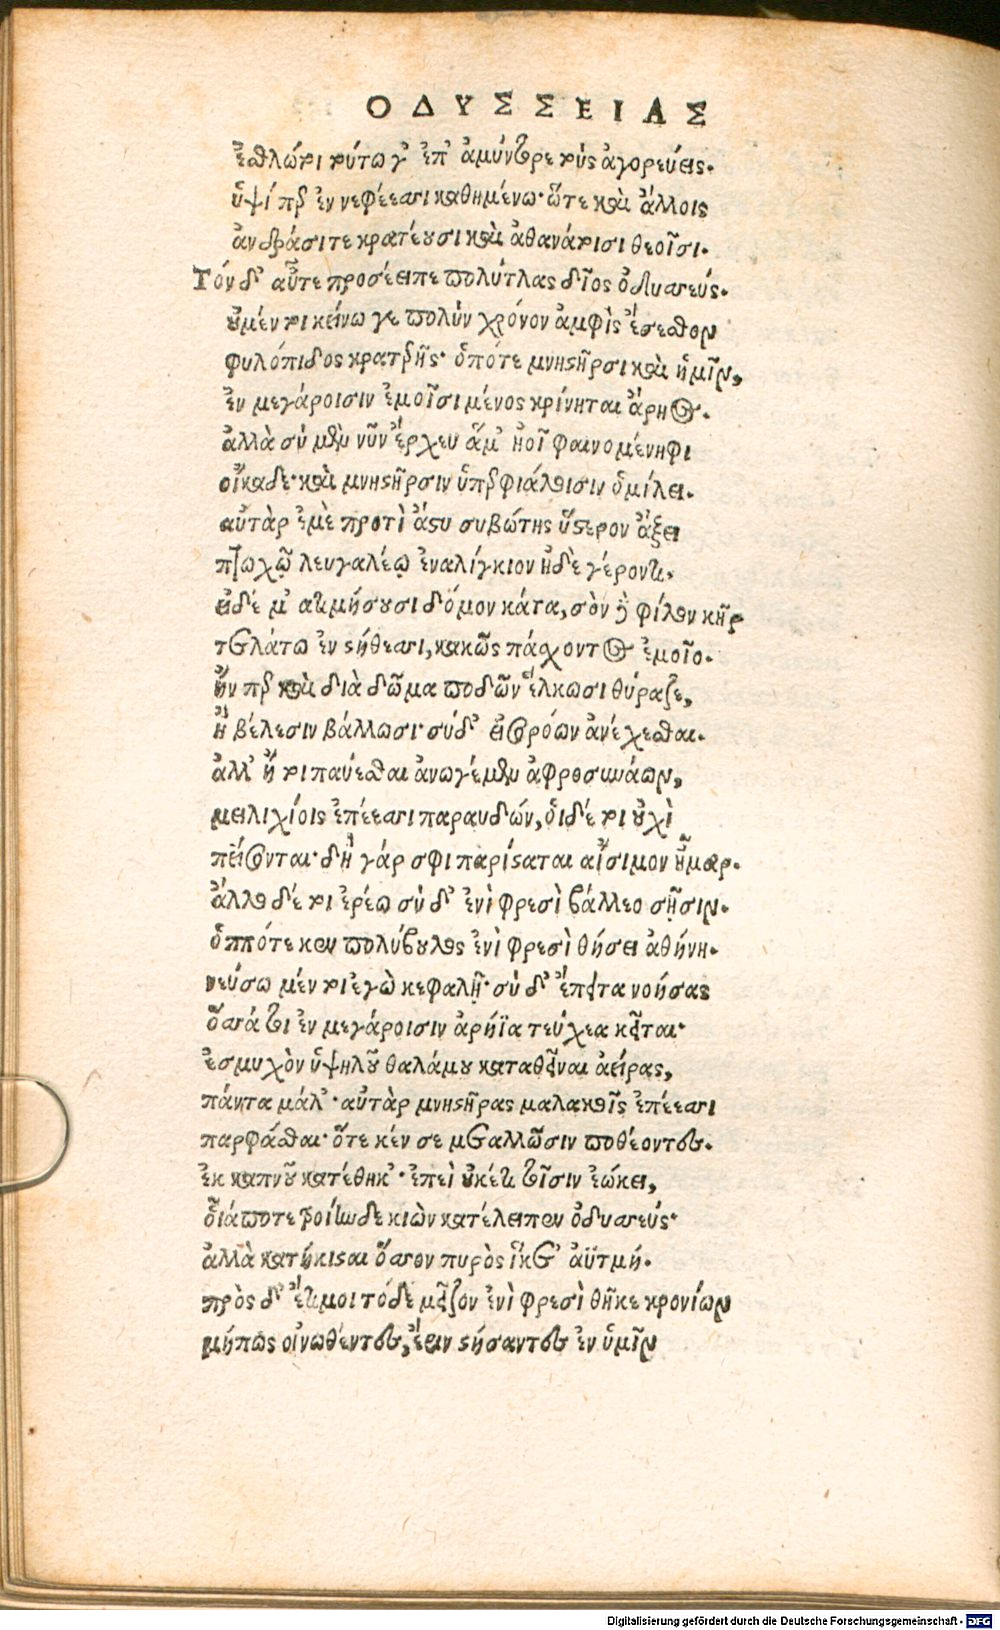 ΟΔΥΣΣΕΙΑΣ
ἐσθλώ τοι τούτω γ' ἐπ' ἀμύντορε τοὺς ἀγορεύεις.
ὕψί περ ἐν νεφέεσσι καθημένω· ὥτε καὶ ἄλλοις
ἀνδράσι τε κρατέουσι καὶ ἀθανάτοισι θεοῖσι.
Τόν δ' αὖτε προσέειπε πολύτλας δῖος ὀδυσσεύς.
οὐ μέν τοι κείνω γε πολὺν χρόνον ἀμφὶς ἔσεσθον
φυλόπιδος κρατερῆς· ὁπότε μνηστῆρσι καὶ ἡμῖν,
ἐν μεγάροισιν ἐμοῖσι μένος κρίνηται ἄρηος.
ἀλλὰ σὺ μὲν νῦν ἔρχευ ἅμ' ἠοῖ φαινομένηφι
οἴκαδε· καὶ μνηστῆρσιν ὑπερφιάλοισιν ὁμίλει.
αὐτὰρ ἐμὲ προτὶ ἄστυ συβώτης ὕστερον ἄξει
πτωχῷ λευγαλέῳ ἐναλίγκιον ἠδὲ γέροντι,
εἰ δέ μ' ἀτιμήσουσι δόμον κάτα, σὸν δὲ φίλον κῆρ
τετλάτω ἐν στήθεσσι, κακῶς πάσχοντος ἐμοῖο.
ἤν περ καὶ διὰ δῶμα ποδῶν ἕλκωσι θύραζε,
ἢ βέλεσιν βάλλωσι· σύ δ' εἰσορόων ἀνέχεσθαι.
ἀλλ' ἤ τοι παύεσθαι ἀνωγέμεν ἀφροσυνάων,
μειλιχίοις ἐπέεσσι παραυδῶν, οἱ δέ τοι οὐχὶ
πείσονται· δὴ γάρ σφι παρίσταται αἴσιμον ἦμαρ.
ἄλλο δέ τοι ἐρέω σὺ δ' ἐνὶ φρεσὶ βάλλεο σῇσιν.
ὁππότε κεν πολύβουλος ἐνὶ φρεσὶ θήσει ἀθήνη.
νεύσω μέν τοι ἐγὼ κεφαλῇ· σὺ δ' ἔπειτα νοήσας
ὅσσά τοι ἐν μεγάροισιν ἀρήϊα τεύχεα κεῖται·
ἐς μυχὸν ὑψηλοῦ θαλάμου καταθεῖναι ἀείρας,
πάντα μάλ'· αὐτὰρ μνηστῆρας μαλακοῖς ἐπέεσσι
παρφάσθαι· ὅτε κέν σε μεταλλῶσιν ποθέοντες.
ἐκ καπνοῦ κατέθηκ'· ἐπεὶ οὐκέτι τοῖσιν ἐῴκει,
οἷά ποτε τροίηνδε κιὼν κατέλειπεν ὀδυσσεύς·
ἀλλὰ κατῄκισται ὅσσον πυρὸς ἵκετ' ἀϋτμή.
πρὸς δ' ἔτι μοι τόδε μεῖζον ἐνὶ φρεσὶ θῆκε κρονίων
μήπως οἰνωθέντες, ἔριν στήσαντες ἐν ὑμῖν
Digitalisierung gefördert durch die Deutsche Forschungsgemeinschaft - DFG